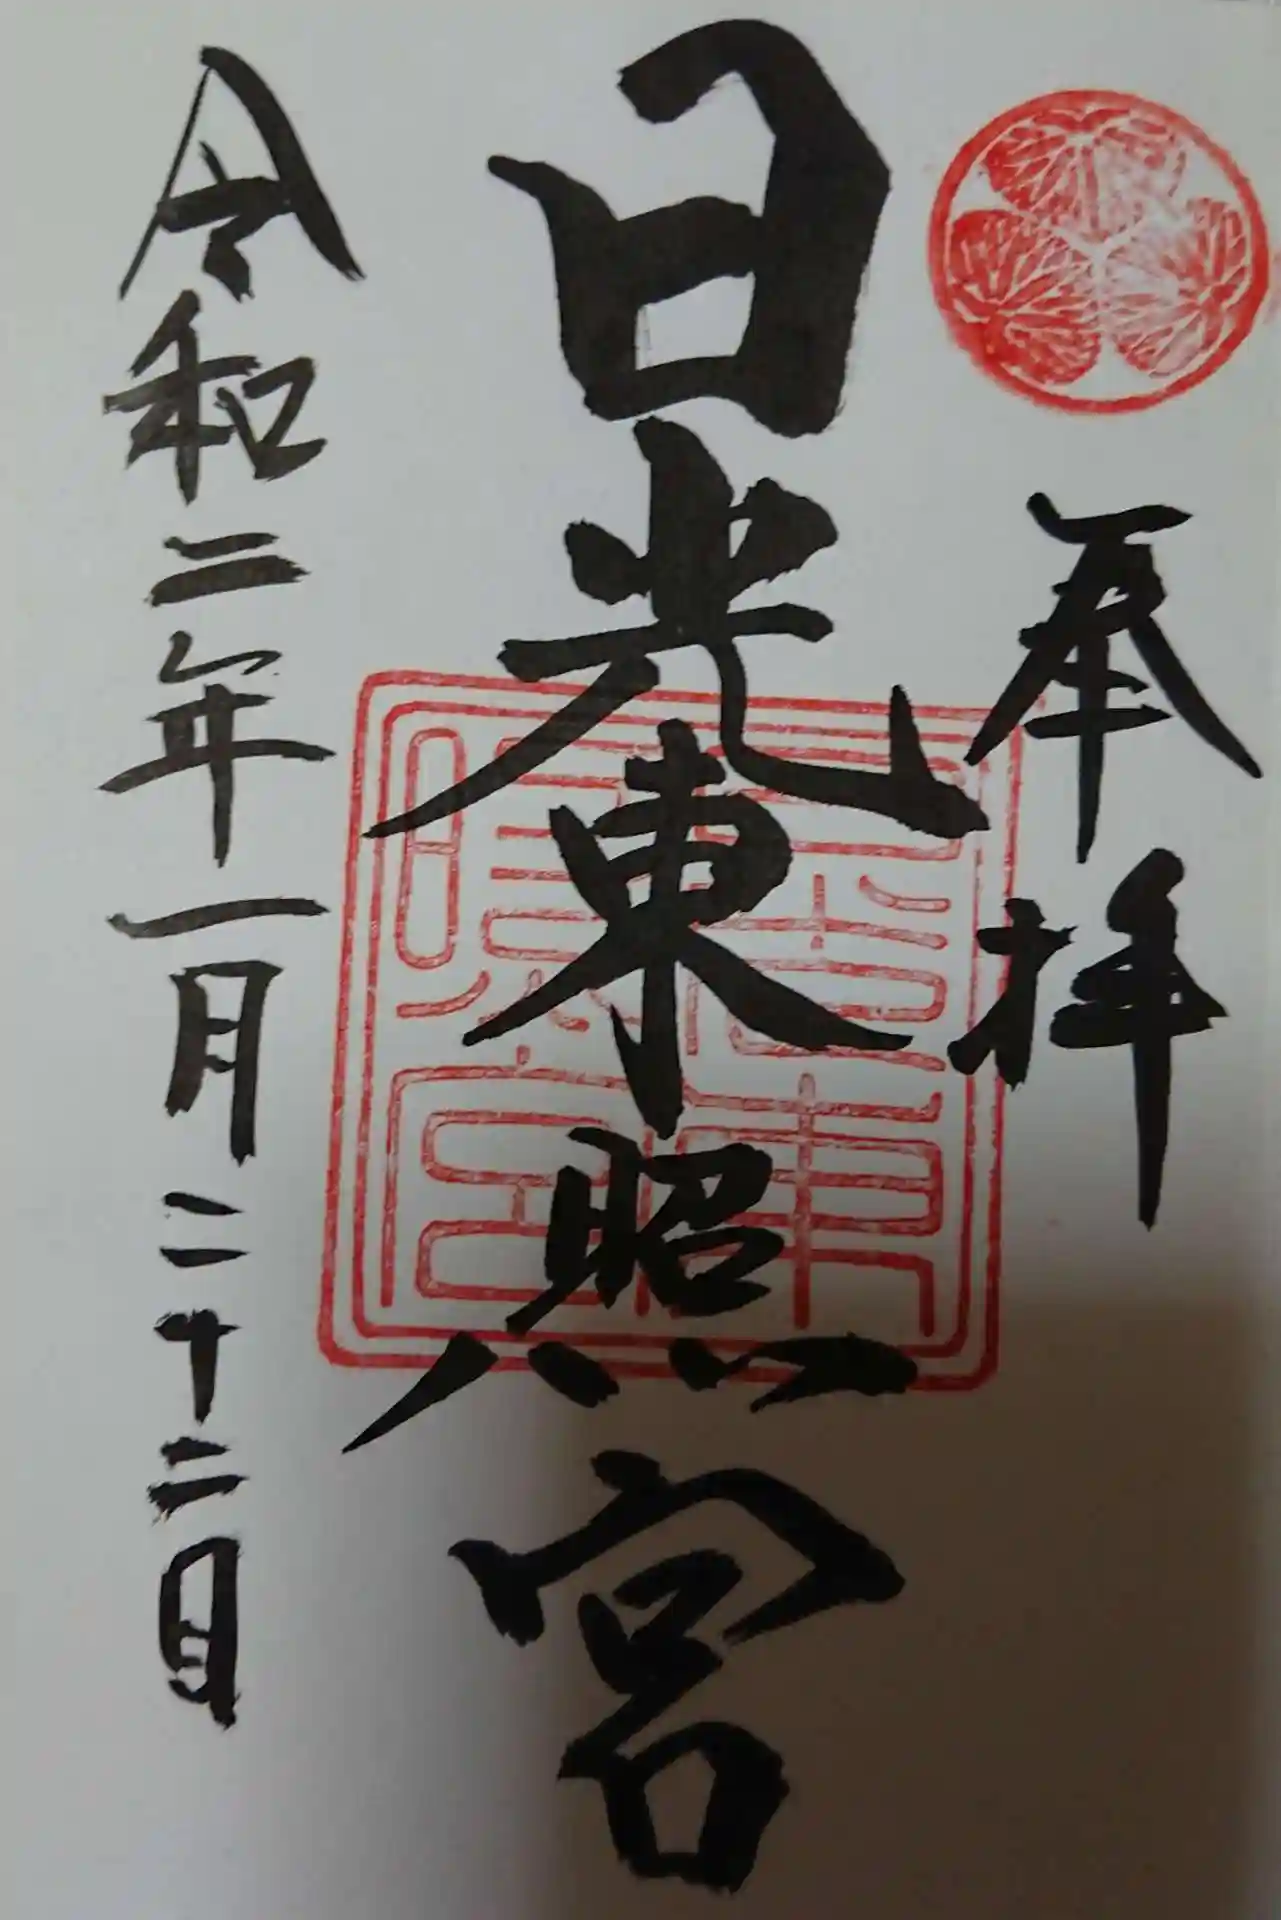 奉拝
日光東照宮
令和二年一月二十二日